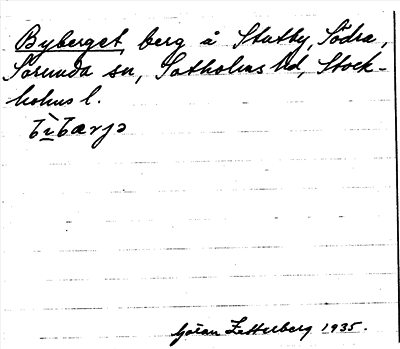 Byberget, berg å Stutby, Södra,
Sorunda sn, Sotholms hd, Stock-
holms l.
Göran Zetterberg 1935.